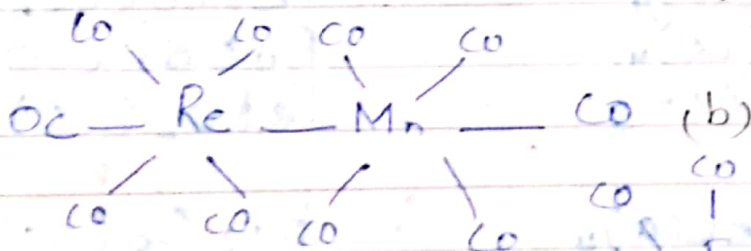 CO CO CO CO
OC — Re — Mn — CO (b)
CO
CO CO CO CO CO